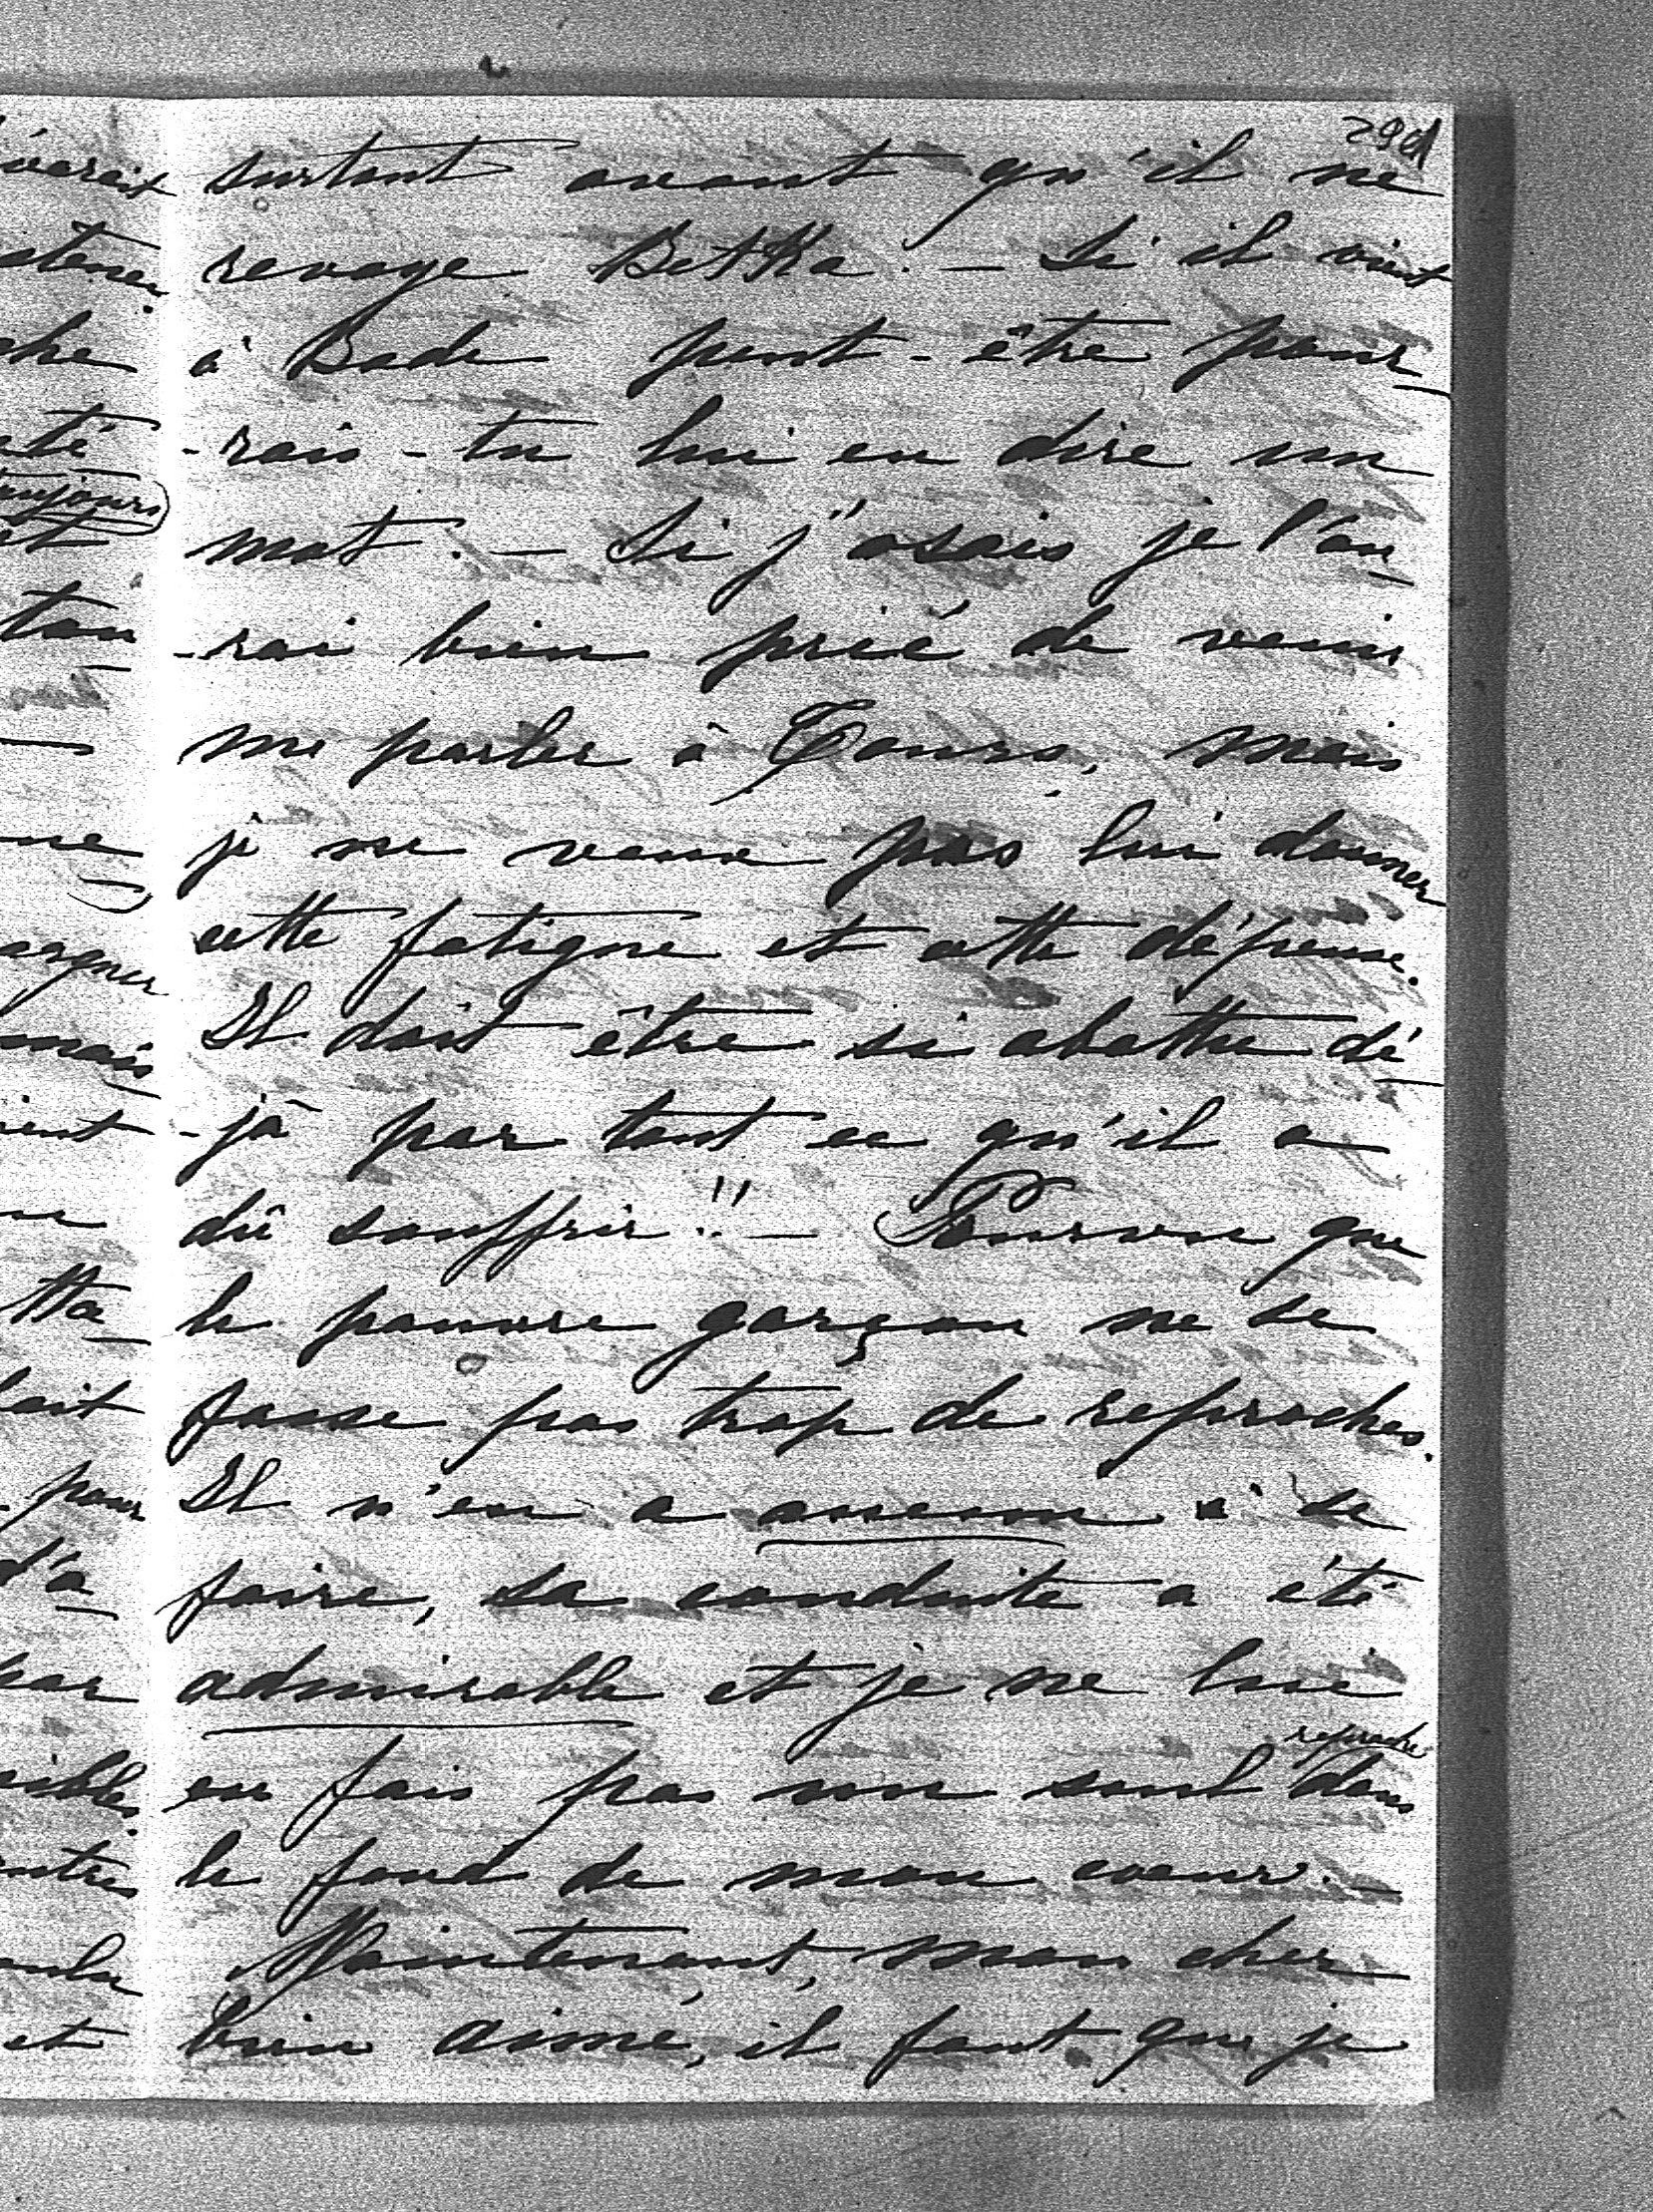 surtout avant qu'il ne
revoye Betka. – Si il vient
à Bade peut-être pour-
-rais-tu lui en dire un
mot. – Si j'osais je l'au-
-rai bien prié de venir
me parler à Tours, mais
je ne veux pas lui donner
cette fatigue et cette dépense.
Il doit être si abattu dé-
-jà par tout ce qu'il a
dû souffrir!! – Pourvu que
le pauvre garçon ne se
fasse pas trop de reproches.
Il n'en a aucun à se
faire, sa conduite a été
admirable et je ne lui
reproche
en fais pas un seul dans
le fond de mon coeur. –
Maintenant, mon cher
bien aimé, il faut que je
toujours
mais
pour
par
et